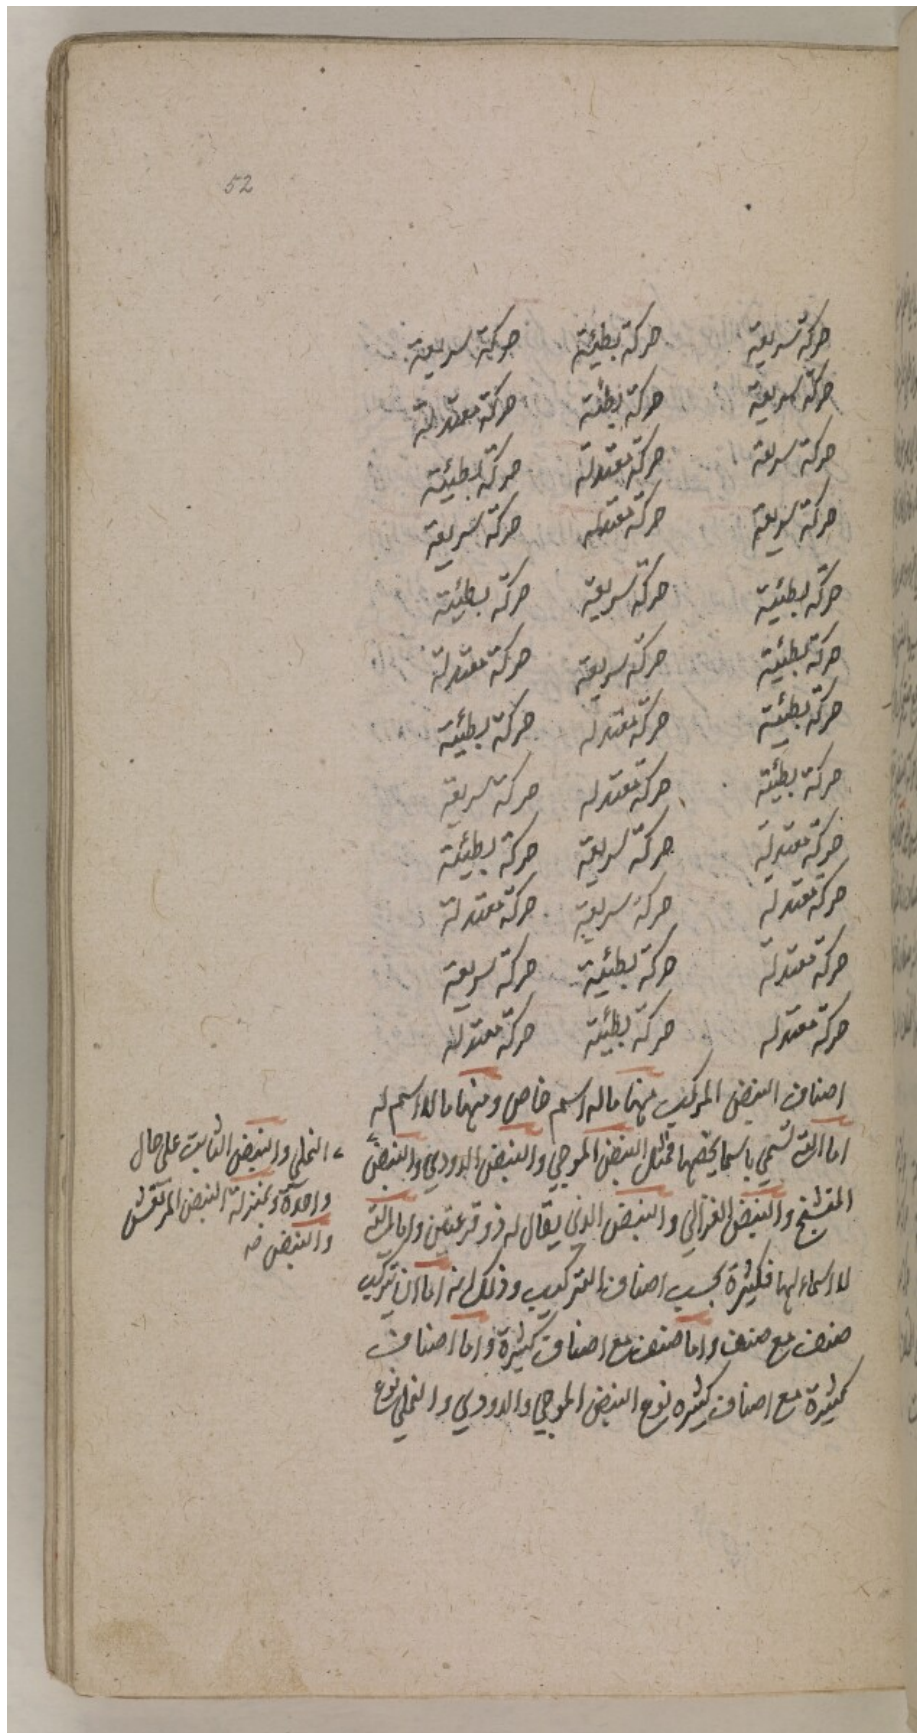 52
حركة سريعة حركة بطيئة حركة سريعة
حركة سريعة حركة بطيئة حركة معتدلة
حركة سريعة حركة معتدلة حركة بطيئة
حركة سريعة حركة معتدلة حركة سريعة
حركة بطيئة حركة سريعة حركة بطيئة
حركة بطيئة حركة سريعة حركة معتدلة
حركة بطيئة حركة معتدله حركة بطيئة
حركة بطيئة حركة معتدله حركة سريعة
حركة معتدلة حركة سريعة حركة بطيئة
حركة معتدلة حركة سريعة حركة معتدلة
حركة معتدلة حركة بطيئة حركة سريعة
حركة معتدله حركة بطيئة حركة معتدله
اصناف النبض المركب منها ما له اسم خاص ومنها ما لا اسم له
اما التى تسمي باسما يخصها فمثل النبض الموجي والنبض الدودي والنبض
النملي والنبض الثابت على حال
واحدة وبمنزلة النبض المرتعش
والنبض
المتشنج والنبض الغزالي والنبض الذي يقال له ذو قرعتين واما التى
لا اسماء لها فكثيرة بحسب اصناف التركيب وذلك انه اما ان يتركب
صنف مع صنف واما صنف مع اصناف كثيرة واما اصناف
كثيرة مع اصناف كثيره نوع النبض الموجي والدودي والنملي نوع